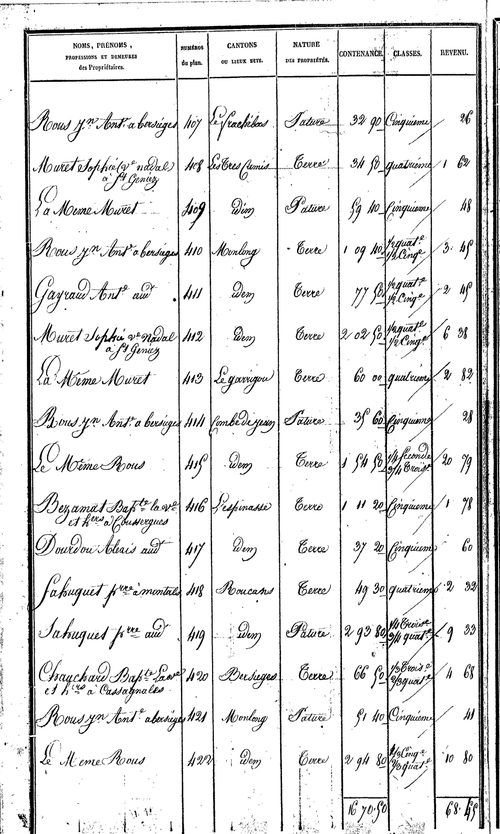 NOMS, PRÉNOMS, PROFESSIONS ET DEMEURES des Propriétaires. NUMÉROS du plan. CANTONS OU LIEUX DITS. NATURE DES PROPRIÉTÉS. CONTENANCE. CLASSES. REVENU.
Rous jn Ant. a berséges 407 Pature 32 90 Cinquieme 26
Muret Sophie ve nadal 408 Les tres Camis Terre 34 50 quatrieme 1 62
à St Geniez
La Meme Muret 409 idem Pature 59 40 Cinquieme 48
Rous jn Ant. a berséges 410 Monlong Terre 1 09 40 1/2 quat. 1/2 Cinq. 3 45
Gayraud Ant. aud. 411 idem Terre 77 50 1/2 quat. 1/2 Cinq. 2 45
Muret Sophie ve nadal 412 idem Terre 2 02 50 1/2 quat. 1/2 Cinq. 6 38
à St Geniez
La Même Muret 413 Le garrigou Terre 60 00 quatrieme 2 82
Rous jn Ant. a berséges 414 Combe de Pature 35 60 Cinquieme 28
Le Même Rous 415 idem Terre 1 54 50 1/4 Seconde 3/4 Trois. 20 79
Bezamat Bapte la ve 416 Lespinasse Terre 1 11 20 Cinquieme 1 78
et hers à Coussergues
Dourdou Alexis aud. 417 idem Terre 37 20 Cinquieme 60
Sahuguet prre a 418 Roucans Terre 49 30 quatrieme 2 32
Sahuguet prre aud. 419 idem Pature 2 93 80 1/4 Trois. 3/4 quat. 9 33
Chauchard Bapte La ve 420 Berséges Terre 66 50 1/3 Trois. 2/3 quat. 4 68
et hers à Cassagnoles
Rous jn Ant. a berséges 421 Monlong Pature 51 40 Cinquieme 41
Le Meme Rous 422 idem Terre 2 94 80 Cinq. quat. 10 80
16 70 50 68 45